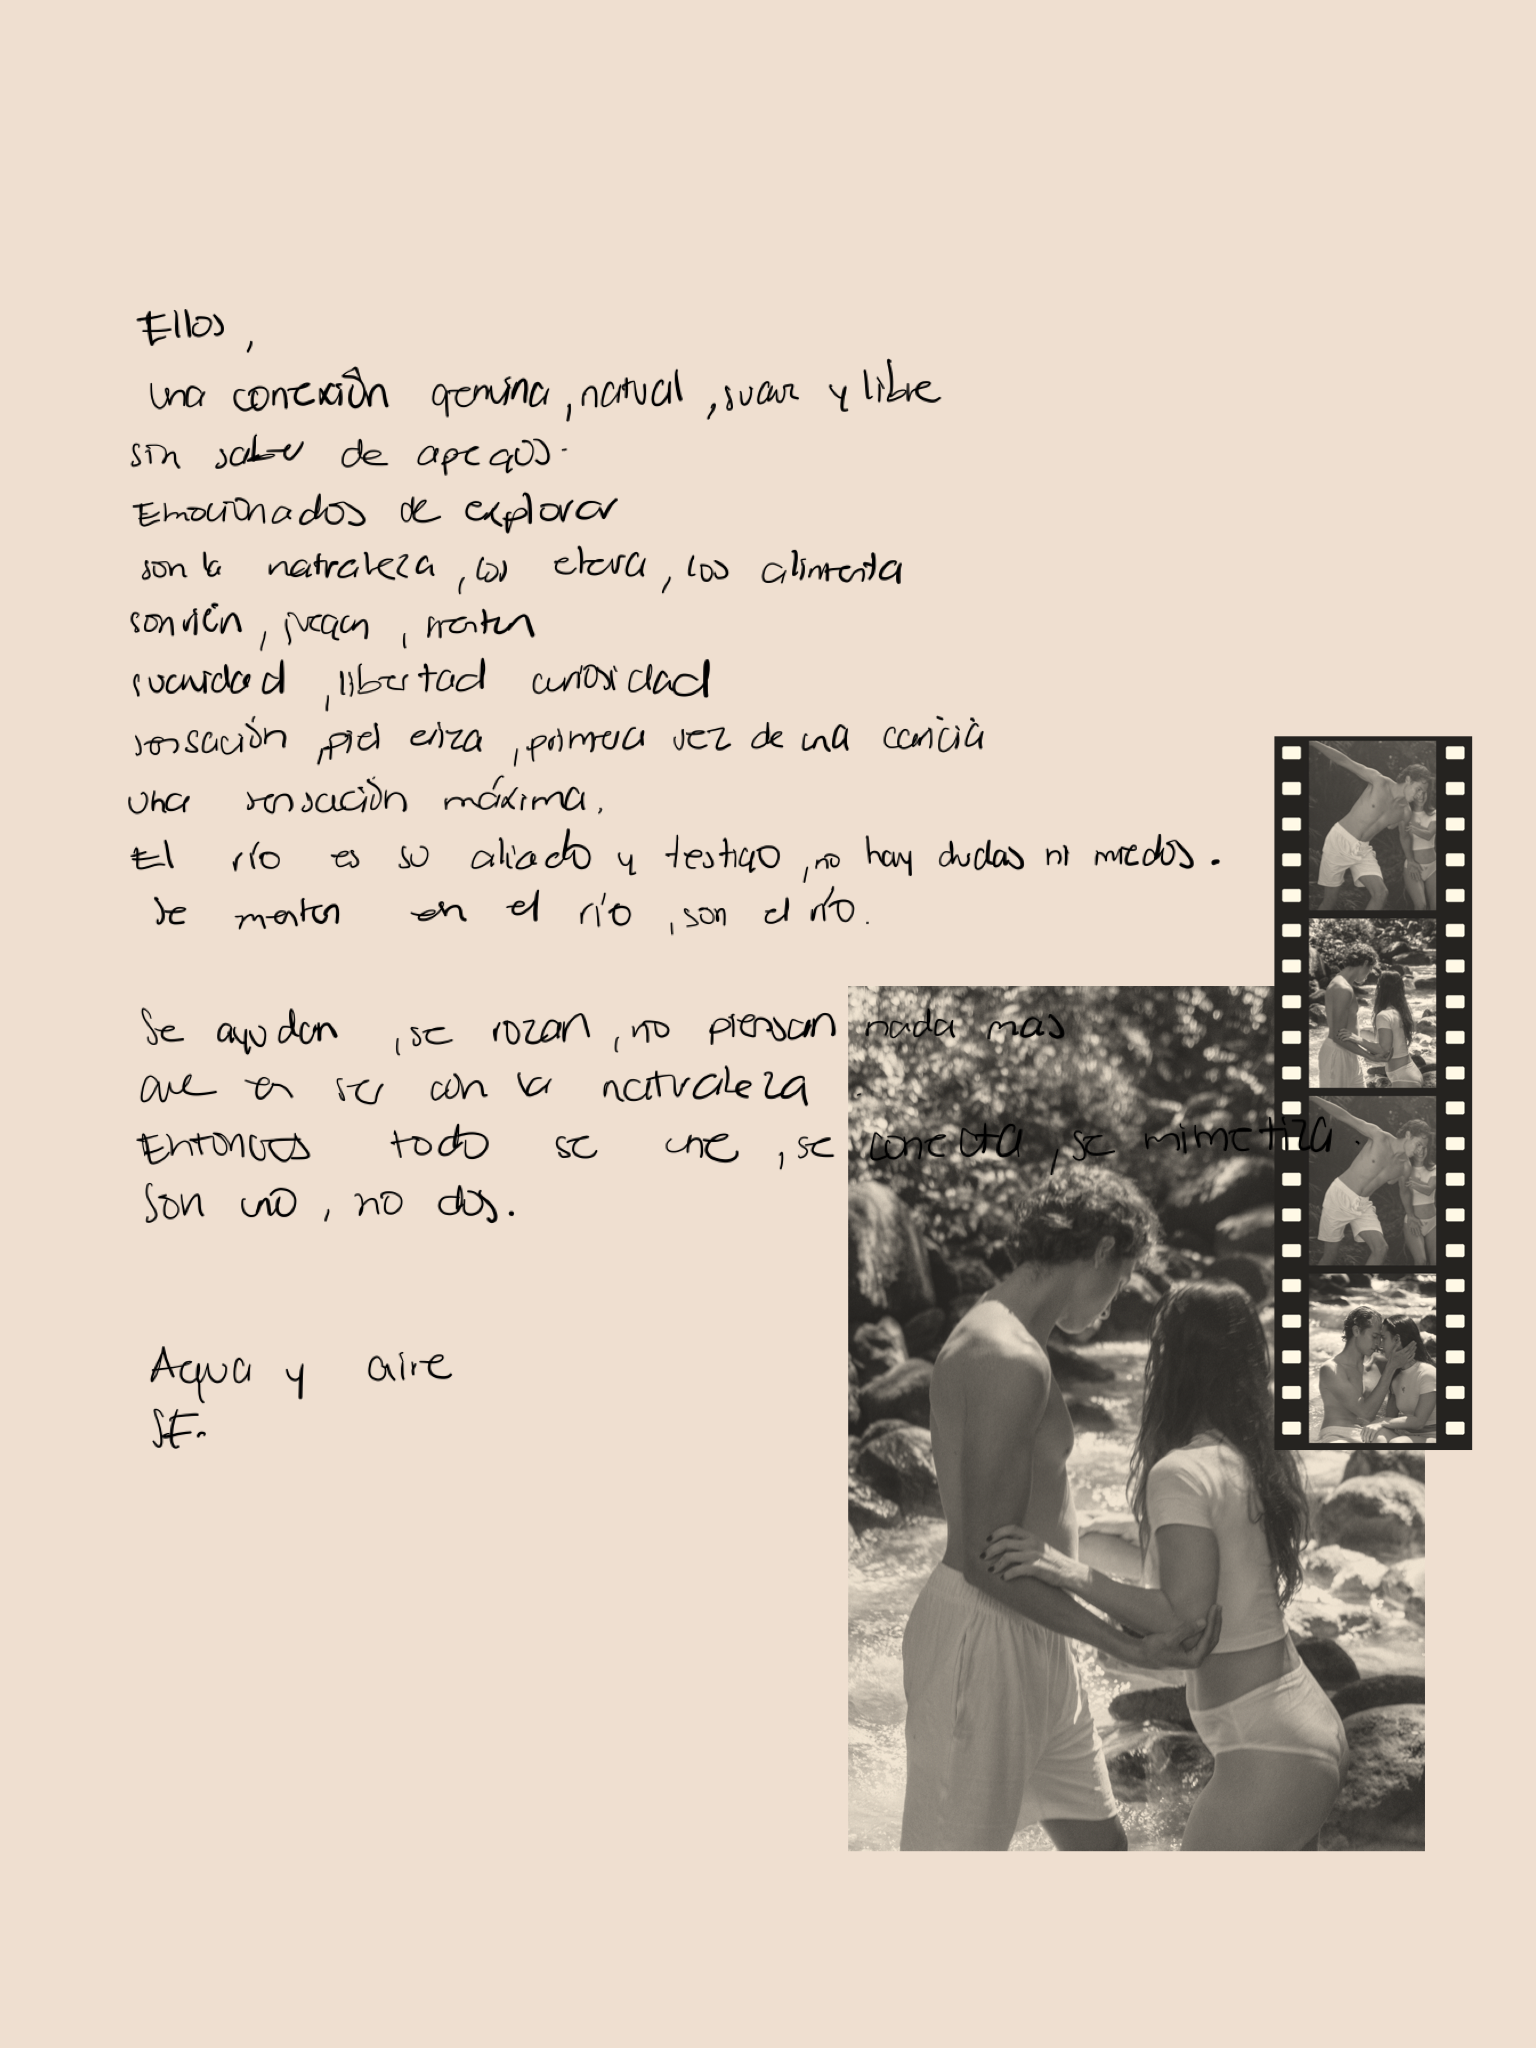 Ellos,
una conexión genuina, natural, suave y libre
sin saber de apegos.
Emocionados de explorar
son la naturaleza, los eleva, los alimenta
sonríen, juegan, sienten
suavidad, libertad curiosidad
sensación, piel eriza, primera vez de una caricia
una sensación máxima.
El río es su aliado y testigo, no hay dudas ni miedos.
Se meten en el río, son el río.
Se ayudan, se rozan, no piensan nada mas
que en ser con la naturaleza.
Entonces todo se une, se conecta, se mimetiza.
Son uno, no dos.
Agua y aire
SE.